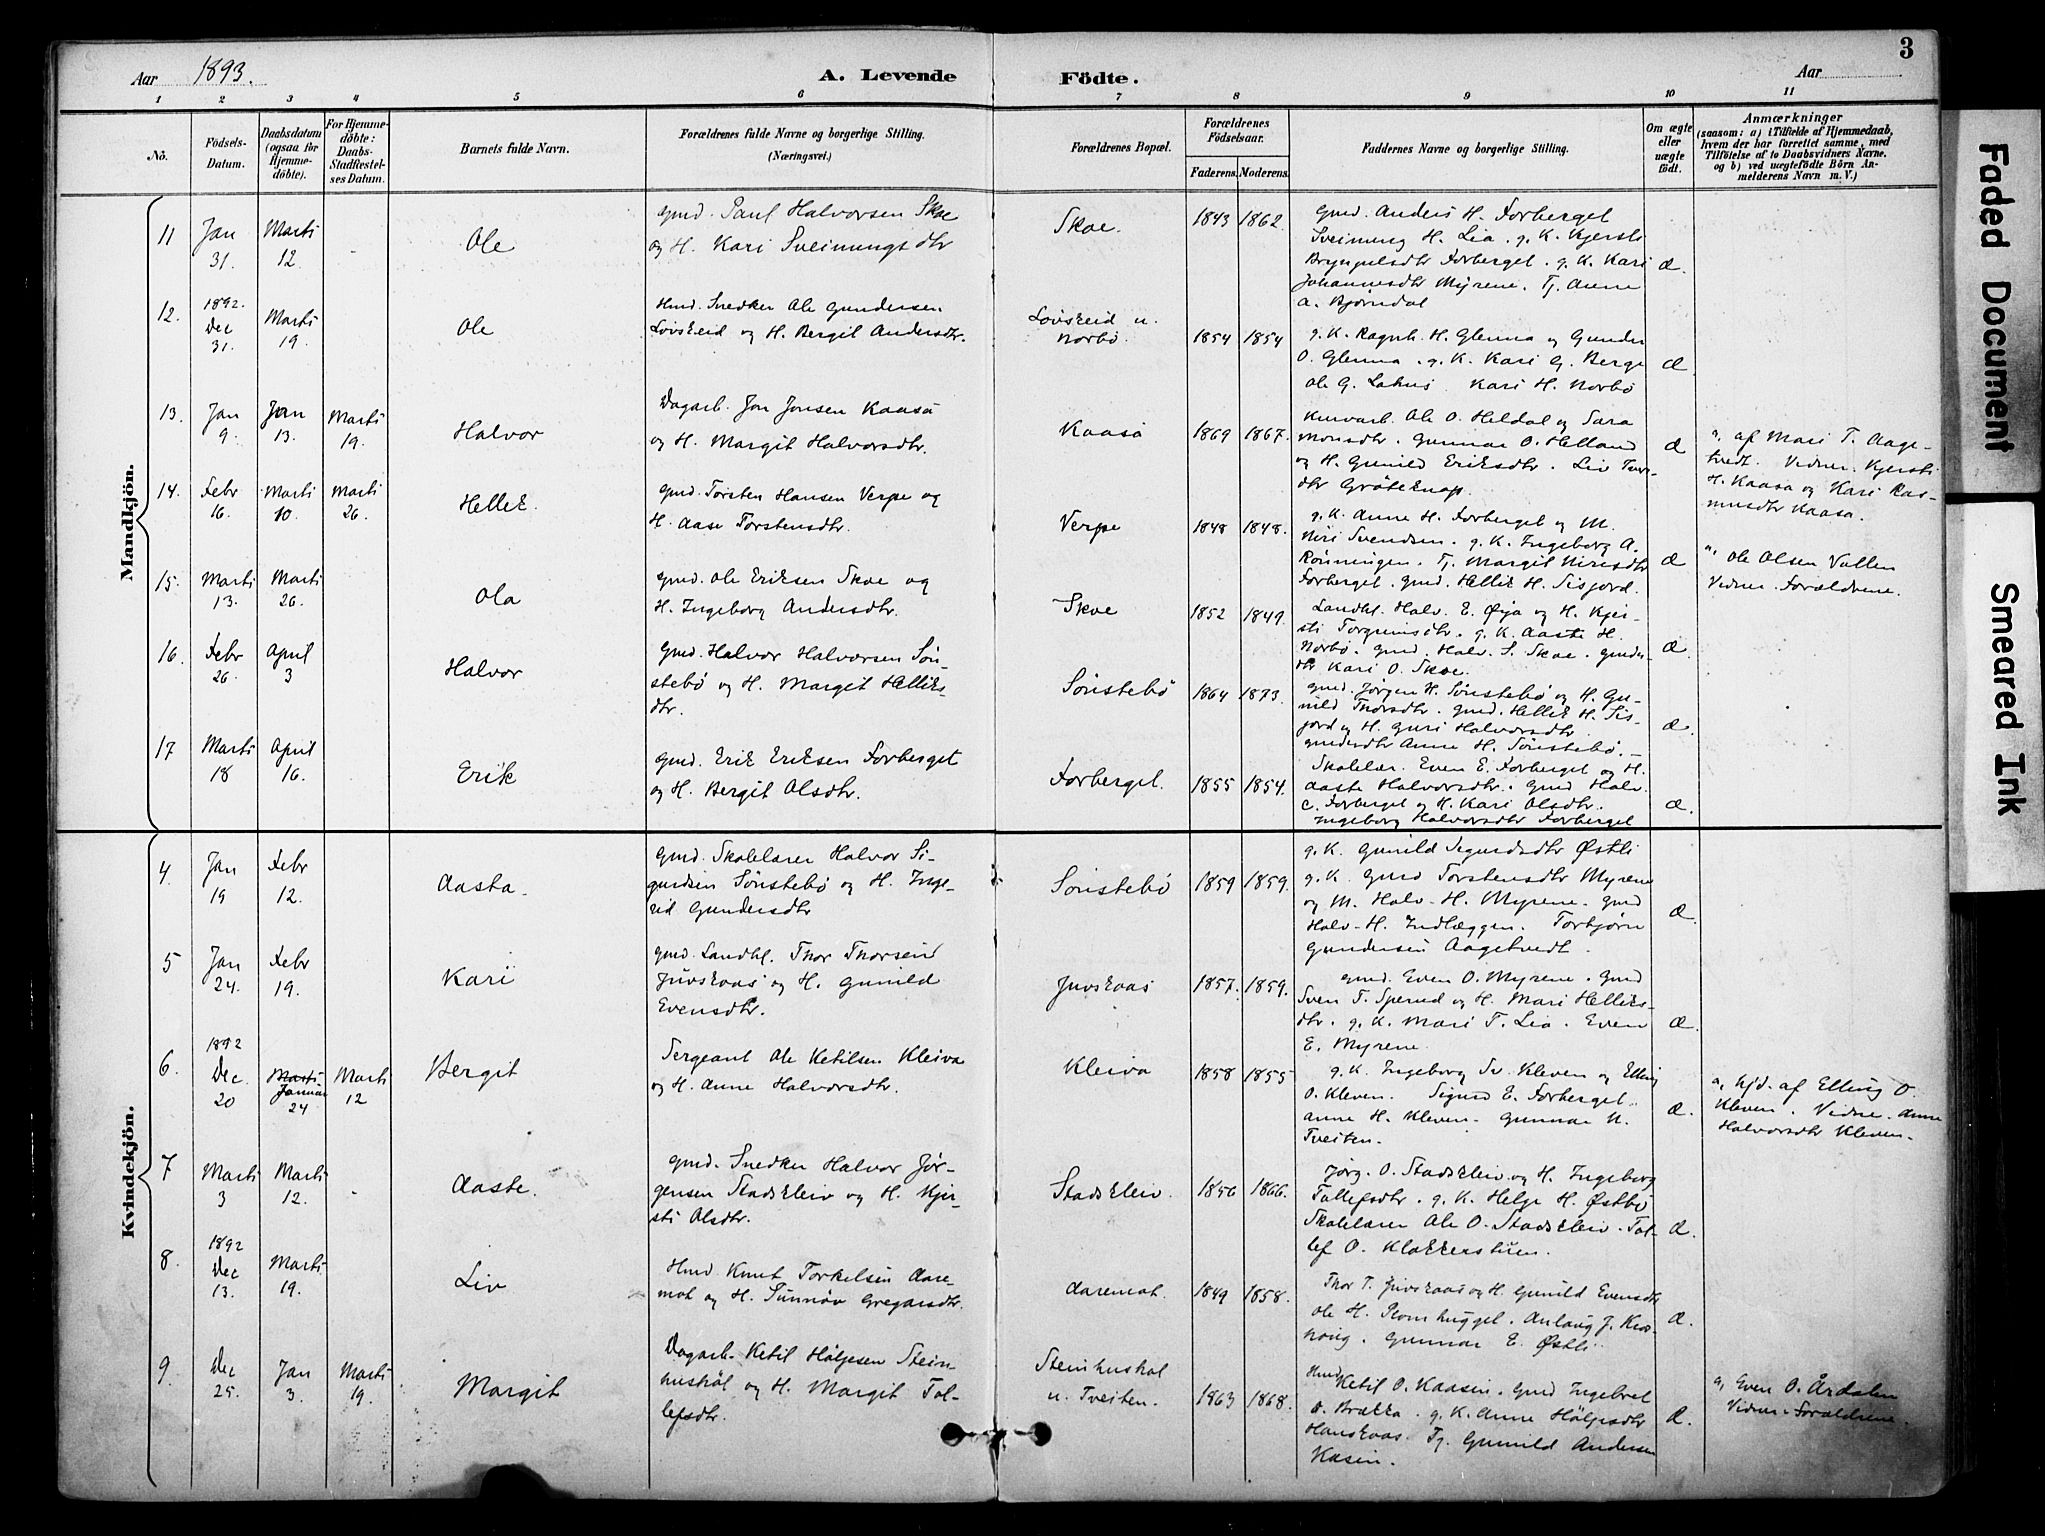 3
Aar 1893.
A. Levende Födte.
Aar
1 2 3 4 5 6 7 8 9 10 11
No.
Födsels-
Datum.
Daabsdatum
(ogsaa for
Hjemme-
döbte).
For Hjemme-
döbte:
Daabs-
Stadfæstel-
ses Datum.
Barnets fulde Navn.
Forældrenes fulde Navne og borgerlige Stilling.
(Næringsvei.)
Forældrenes Bopæl.
Forældrenes
Födselsaar.
Faderens. Moderens.
Faddernes Navne og borgerlige Stilling.
Om ægte
eller
uægte
födt.
Anmærkninger
(saasom: a) i Tilfælde af Hjemmedaab,
hvem der har forrettet samme, med
Tilföielse af to Daabsvidners Navne.
og b) ved uægtefödte Börn An-
melderens Navn m. V.)
Mandkjön.
11
Jan
31.
Marts
12.
Ole
Gmd. Paul Halvorsen Skoe
og H. Kari Sveinungsdtr
Skoe.
1843 1862.
Gmd. Anders H. Forberget
Sveinung H. Lia. g. K. Kjersti
Brynjulsdtr Forberget. g. K. Kari
Johannesdtr Myrene. Tj. Anne
a. Bjørndal
Æ.
12.
1892.
Dec
31.
Marts
19.
Ole
Hmd. Snedker Ole Gundersen
Lovskeid og H. Bergit Andersdtr.
Lovskeid u.
Norbø.
1854 1854
g. K. Ragnh. H. Glenna og Gunder
O. Glenna. g. K. Kari G. Berge
Ole G. Lahus. Kari H. Norbø
Æ
13.
Jan
9.
Jan
13.
Marts
19.
Halvor
Dagarb. Jon Jonsen Kaasa
og H. Margit Halvorsdtr.
Kaasa
1869 1867.
Kurvarb. Ole O. Heldal og Sara
Monsdtr. Gunnar O. Helland
og H. Gunild Eriksdtr. Liv
dtr Grøteknap.
Æ
a, af Mari T. Aage-
tvedt. Vidner. Kjersti
H. Kaasa og Kari Ras-
musdtr Kaasa.
14.
Febr
16.
Marts
10.
Marts
26.
Hellek.
Gmd. Torsten Hansen Verpe og
H. Aase Torstensdtr.
Verpe
1848 1848.
g. K. Anne H. Forberget og M.
Niri Svendsen. g. K. Ingeborg A.
Rønningen. Tj. Margit Nirisdtr
Forberget. Gmd. Hellek H. Sisjord.
Æ
a, Ole Olsen Vallen
Vidner. Forældrene.
15.
Marts
13.
Marts
26.
Ola
Gmd. Ole Eriksen Skoe og
H. Ingeborg Andersdtr.
Skoe
1852 1849.
Landhl. Halv. E. Øya og H. Kjer-
sti Torgrimsdtr. g. K. Aaste H.
Norbø. Gmd. Halv. S. Skoe. Gmder-
dtr Kari O. Skoe.
Æ.
16.
Febr
26.
April
3
Halvor
Gmd. Halvor Halvorsen Søn-
stebø og H. Margit Helleks-
dtr.
Sønstebø
1864 1873.
Gmd. Jørgen H. Sønstebø og H. Gu-
nild Thorsdtr. Gmd. Hellek H. Sis-
jord og H. Guri Halvorsdtr.
Gmdersdtr Anne H. Sønstebø.
Æ
17
Marts
18
April
16.
Erik
Gmd. Erik Eriksen Forberget
og H. Bergit Olsdtr.
Forberget.
1855 1854.
Skolelær. Even E. Forberget og H.
Aaste Halvorsdtr. Gmd Halv.
C. Forberget og H. Kari Olsdtr.
Ingeborg Halvorsdtr Forberget
Æ.
Kvindekjön.
4.
Jan
19
Febr
12.
Aasta.
Gmd. Skolelærer Halvor Si-
gurdsen Sønstebø og H. Inge-
rid Gundersdtr
Sønstebø
1859 1859.
g. K. Gunild Sigurdsdtr Østli
g. K. Gurid Torstensdtr Myrene
og M. Halv. H. Myrene. Gmd
Halv. H. Indlæggen. Torbjørn
Gundersen Aagetvedt.
Æ.
5
Jan
24.
Febr
19.
Kari
Gmd. Landhl. Thor Thorsen
Juvskaas og H. Gunild
Evensdtr.
Juvskaas
1857. 1859.
Gmd. Even O. Myrene. Gmd
Sven T. Sperud og H. Mari Helleks-
dtr. g. K. Mari T. Lia. Even
E. Myrene.
Æ.
6.
1892
Dec.
20
Marts
Januar
24
Marts
12
Bergit
Sergeant Ole Ketilsen Kleiva
og H. Anne Halvorsdtr.
Kleiva
1858 1855
g. K. Ingeborg Sv. Kleven og Elling
O. Kleven. Sigurd E. Forberget.
Anne H. Kleven. Gunnar K.
Tveiten.
Æ.
a, hjd. af Elling O.
Kleven. Vidne. Anne
Halvorsdtr Kleven.
7
Marts
3
Marts
12.
Aaste.
Gmd. Snedker Halvor Jør-
gensen Stadskleiv og H. Kjer-
sti Olsdtr.
Stadskleiv.
1856 1866.
Jørg. O. Stadskleiv og H. Ingeborg
Tollefsdtr. g. K. Helge H. Østbø
Skolelærer Ole O. Stadskleiv. Tol-
lef O. Klokkerstuen.
Æ.
8.
1892
Dec
13.
Marts
19.
Liv
Hmd. Knut Torkelsen Aare-
mot og H. Sunnøv Gregarsdtr.
Aaremot.
1849 1858.
Thor T. Juvskaas og H. Gunild Evensdtr
Ole H. Plomhugget. Anlaug J. Kros-
haug. Gunnar E. Østli.
Æ.
9.
Dec
25.
Jan
3.
Marts
19.
Margit
Dagarb. Ketil Høljesen Stein-
huskøl og H. Margit Tol-
lefsdtr.
Steinhuskol
u. Tveiten.
1863 1868.
Hmd
Ketil O. Kaasin. Gmd Ingebret
O. Brækka. g. K. Anne Høljesdtr
Hanskaas. Tj. Gunild Andersen
Kasin.
Æ.
a, Even O. Årdalen
Vidner. Forældrene.
Faded Document
Smeared Ink